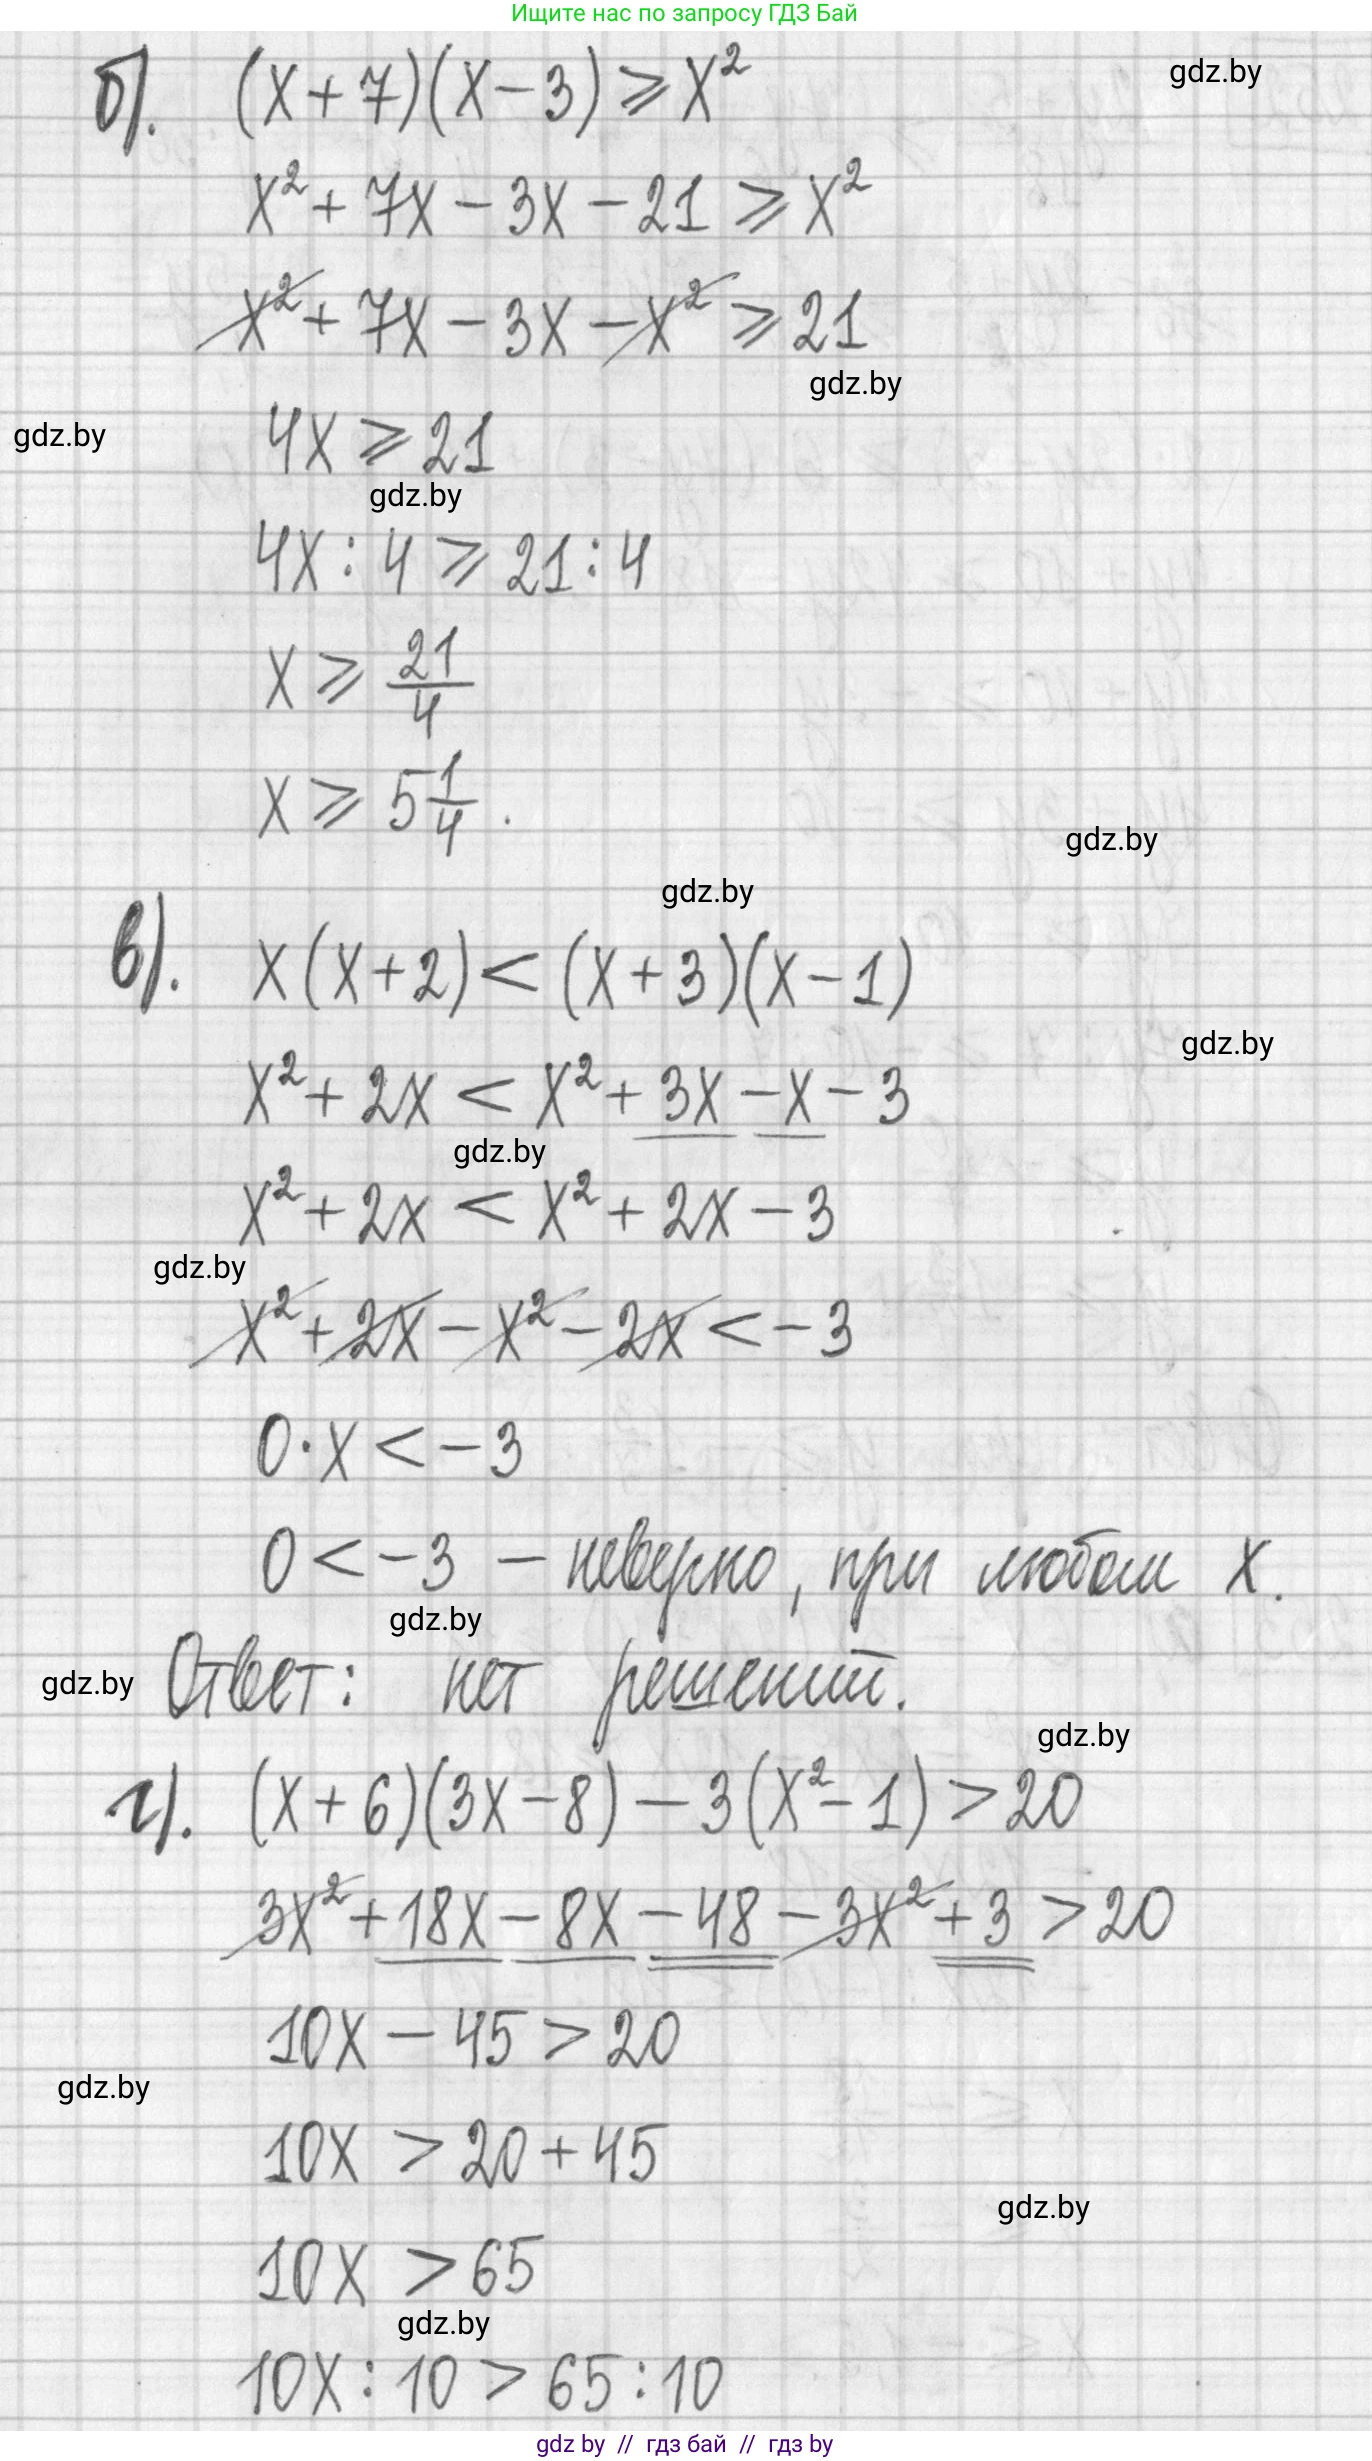 Ищите нас по запросу ГДЗ Бай
б). (x+7)(x-3)⩾x²
gdz.by
x²+7x-3x-21⩾x²
x²+7x-3x-x²⩾21
gdz.by
4x⩾21
gdz.by
gdz.by
4x:4⩾21:4
x⩾21/4
x⩾5 1/4.
gdz.by
gdz.by
в). x(x+2)<(x+3)(x-1)
gdz.by
x²+2x<x²+3x-x-3
gdz.by
x²+2x<x²+2x-3
gdz.by
x²+2x-x²-2x<-3
0·x<-3
0<-3 – неверно, при любом x.
gdz.by
Ответ: нет решений.
gdz.by
gdz.by
г). (x+6)(3x-8)-3(x²-1)>20
3x²+18x-8x-48-3x²+3>20
10x-45>20
gdz.by
10x>20+45
gdz.by
10x>65
gdz.by
10x:10>65:10
gdz by // гдз бай // гдз by